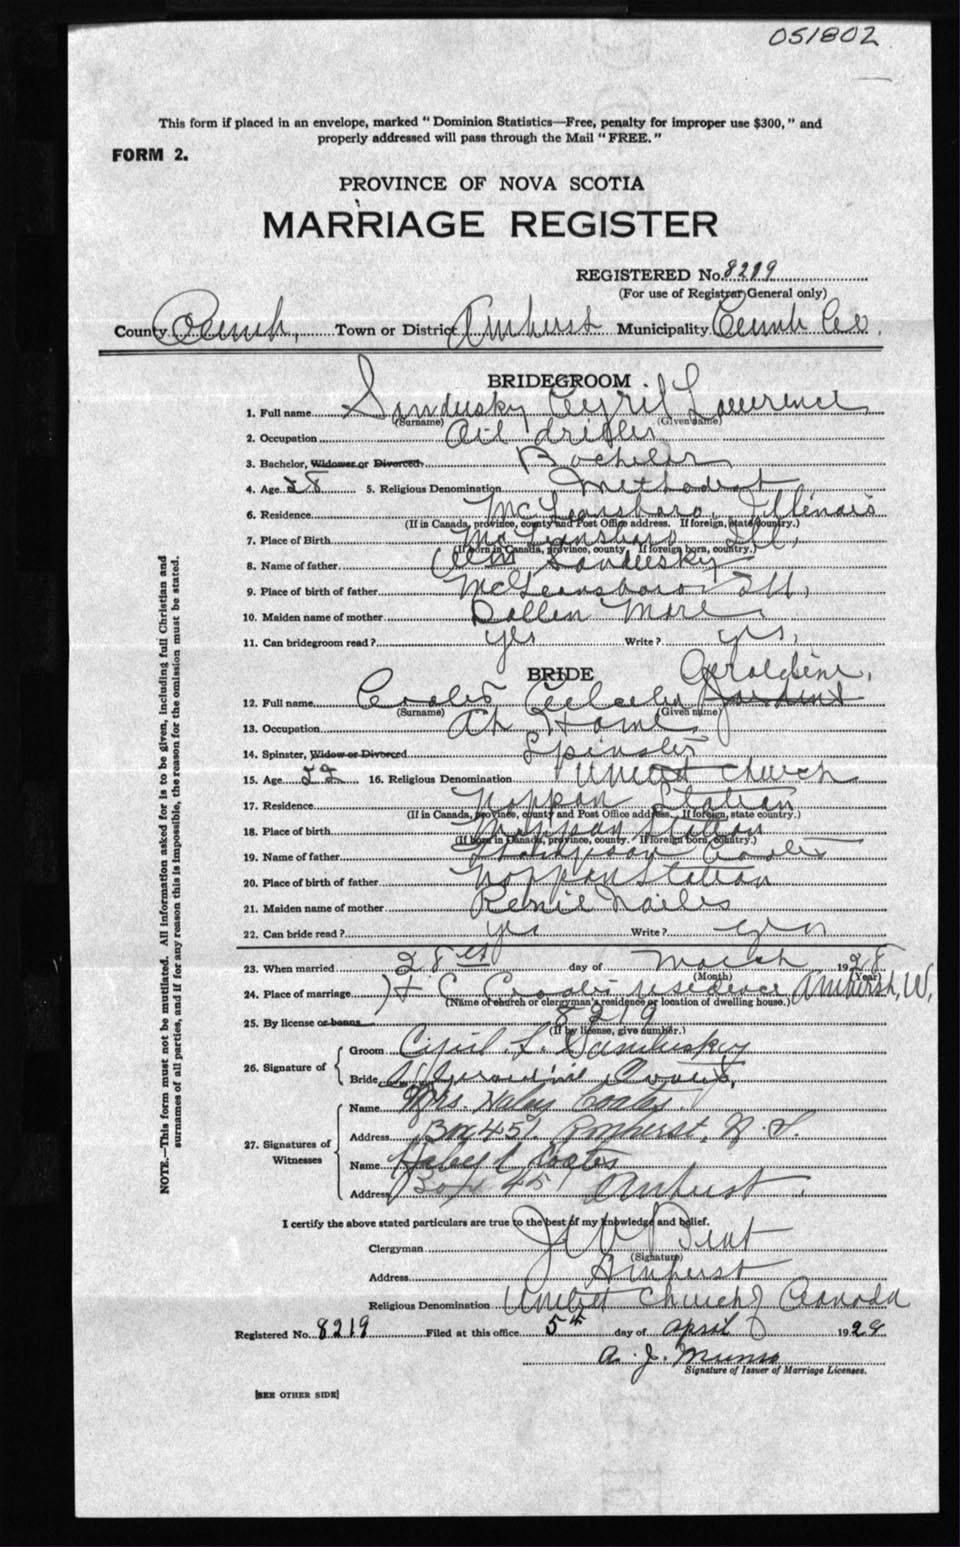 051802
This form if placed in an envelope, marked "Dominion Statistics—Free, penalty for improper use $300," and
properly addressed will pass through the Mail "FREE."
FORM 2.
PROVINCE OF NOVA SCOTIA
MARRIAGE REGISTER
REGISTERED No. 8219
(For use of Registrar General only)
County Cumb, Town or District Amherst Municipality Cumb Co.
BRIDEGROOM
1. Full name Sandusky Cyril Lawrence
(Surname) (Given name)
2. Occupation Oil driller
3. Bachelor, Widower or Divorced. Bachelor
4. Age 28 5. Religious Denomination Methodist
6. Residence McLeansboro, Illinois
(If in Canada, province, county and Post Office address. If foreign, state country.)
7. Place of Birth McLeansboro Ill,
(If born in Canada, province, county. If foreign born, country.)
8. Name of father Sandusky
9. Place of birth of father McLeansboro Ill,
10. Maiden name of mother Dollen More
11. Can bridegroom read? yes Write? yes,
BRIDE Geraldine,
12. Full name Coates
(Surname) (Given name)
13. Occupation At Home
14. Spinster, Widow or Divorced Spinster
15. Age 22 16. Religious Denomination United Church
17. Residence Nappan Station
(If in Canada, province, county and Post Office address. If foreign, state country.)
18. Place of birth Nappan Station
(If born in Canada, province, county. If foreign born, country.)
19. Name of father Coates
20. Place of birth of father Nappan Station
21. Maiden name of mother
22. Can bride read? yes Write? yes
23. When married 28 day of March 1928
(Month) (Year)
24. Place of marriage H C Coates residence Amherst, W.
(Name of church or clergyman's residence or location of dwelling house.)
25. By license or banns 8219
(If by license, give number.)
26. Signature of
Groom Cyril L. Sandusky
Bride Geraldine Coates,
27. Signatures of Witnesses
Name Mrs. Haley Coates.
Address Box 451. Amherst, N. S.
Name Haley C Coates
Address Box 451 Amherst.
I certify the above stated particulars are true to the best of my knowledge and belief.
Clergyman Bent
(Signature)
Address Amherst
Religious Denomination United Church of Canada
Registered No. 8219 Filed at this office 5th day of april 1929
A. J. Munro
Signature of Issuer of Marriage Licenses.
[SEE OTHER SIDE]
NOTE.—This form must not be mutilated. All information asked for is to be given, including full Christian and
surnames of all parties, and if for any reason this is impossible, the reason for the omission must be stated.